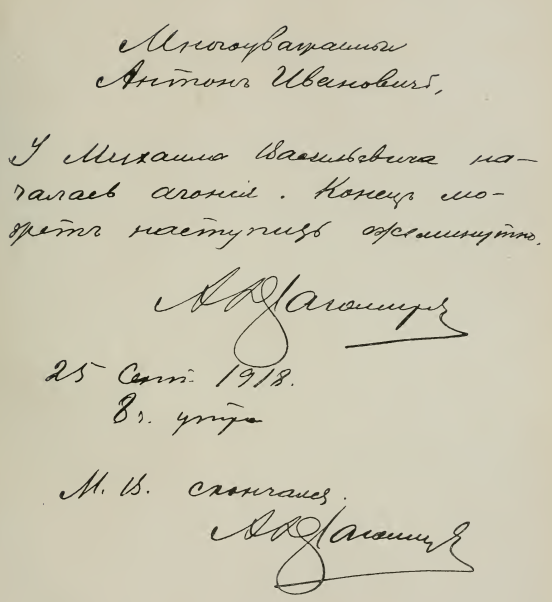 Многоуважаемый
Антонъ Ивановичъ,
У Михаила Васильевича на-
чалась агонія. Конецъ мо-
жетъ наступить ежеминутно.
А Драгомировъ
25 Сент. 1918.
8 ч. утра
М. В. скончался.
А Драгомировъ